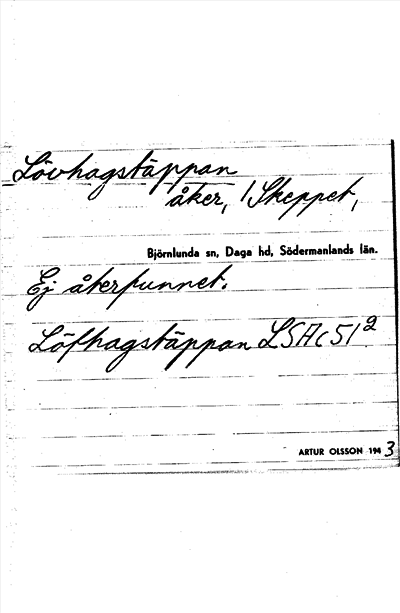 Lövhagstäppan
åker, 1 Skeppet,
Björnlunda sn, Daga hd, Södermanlands län.
Ej återfunnet.
Löfhagstäppan LSA C 51²
ARTUR OLSSON 1943